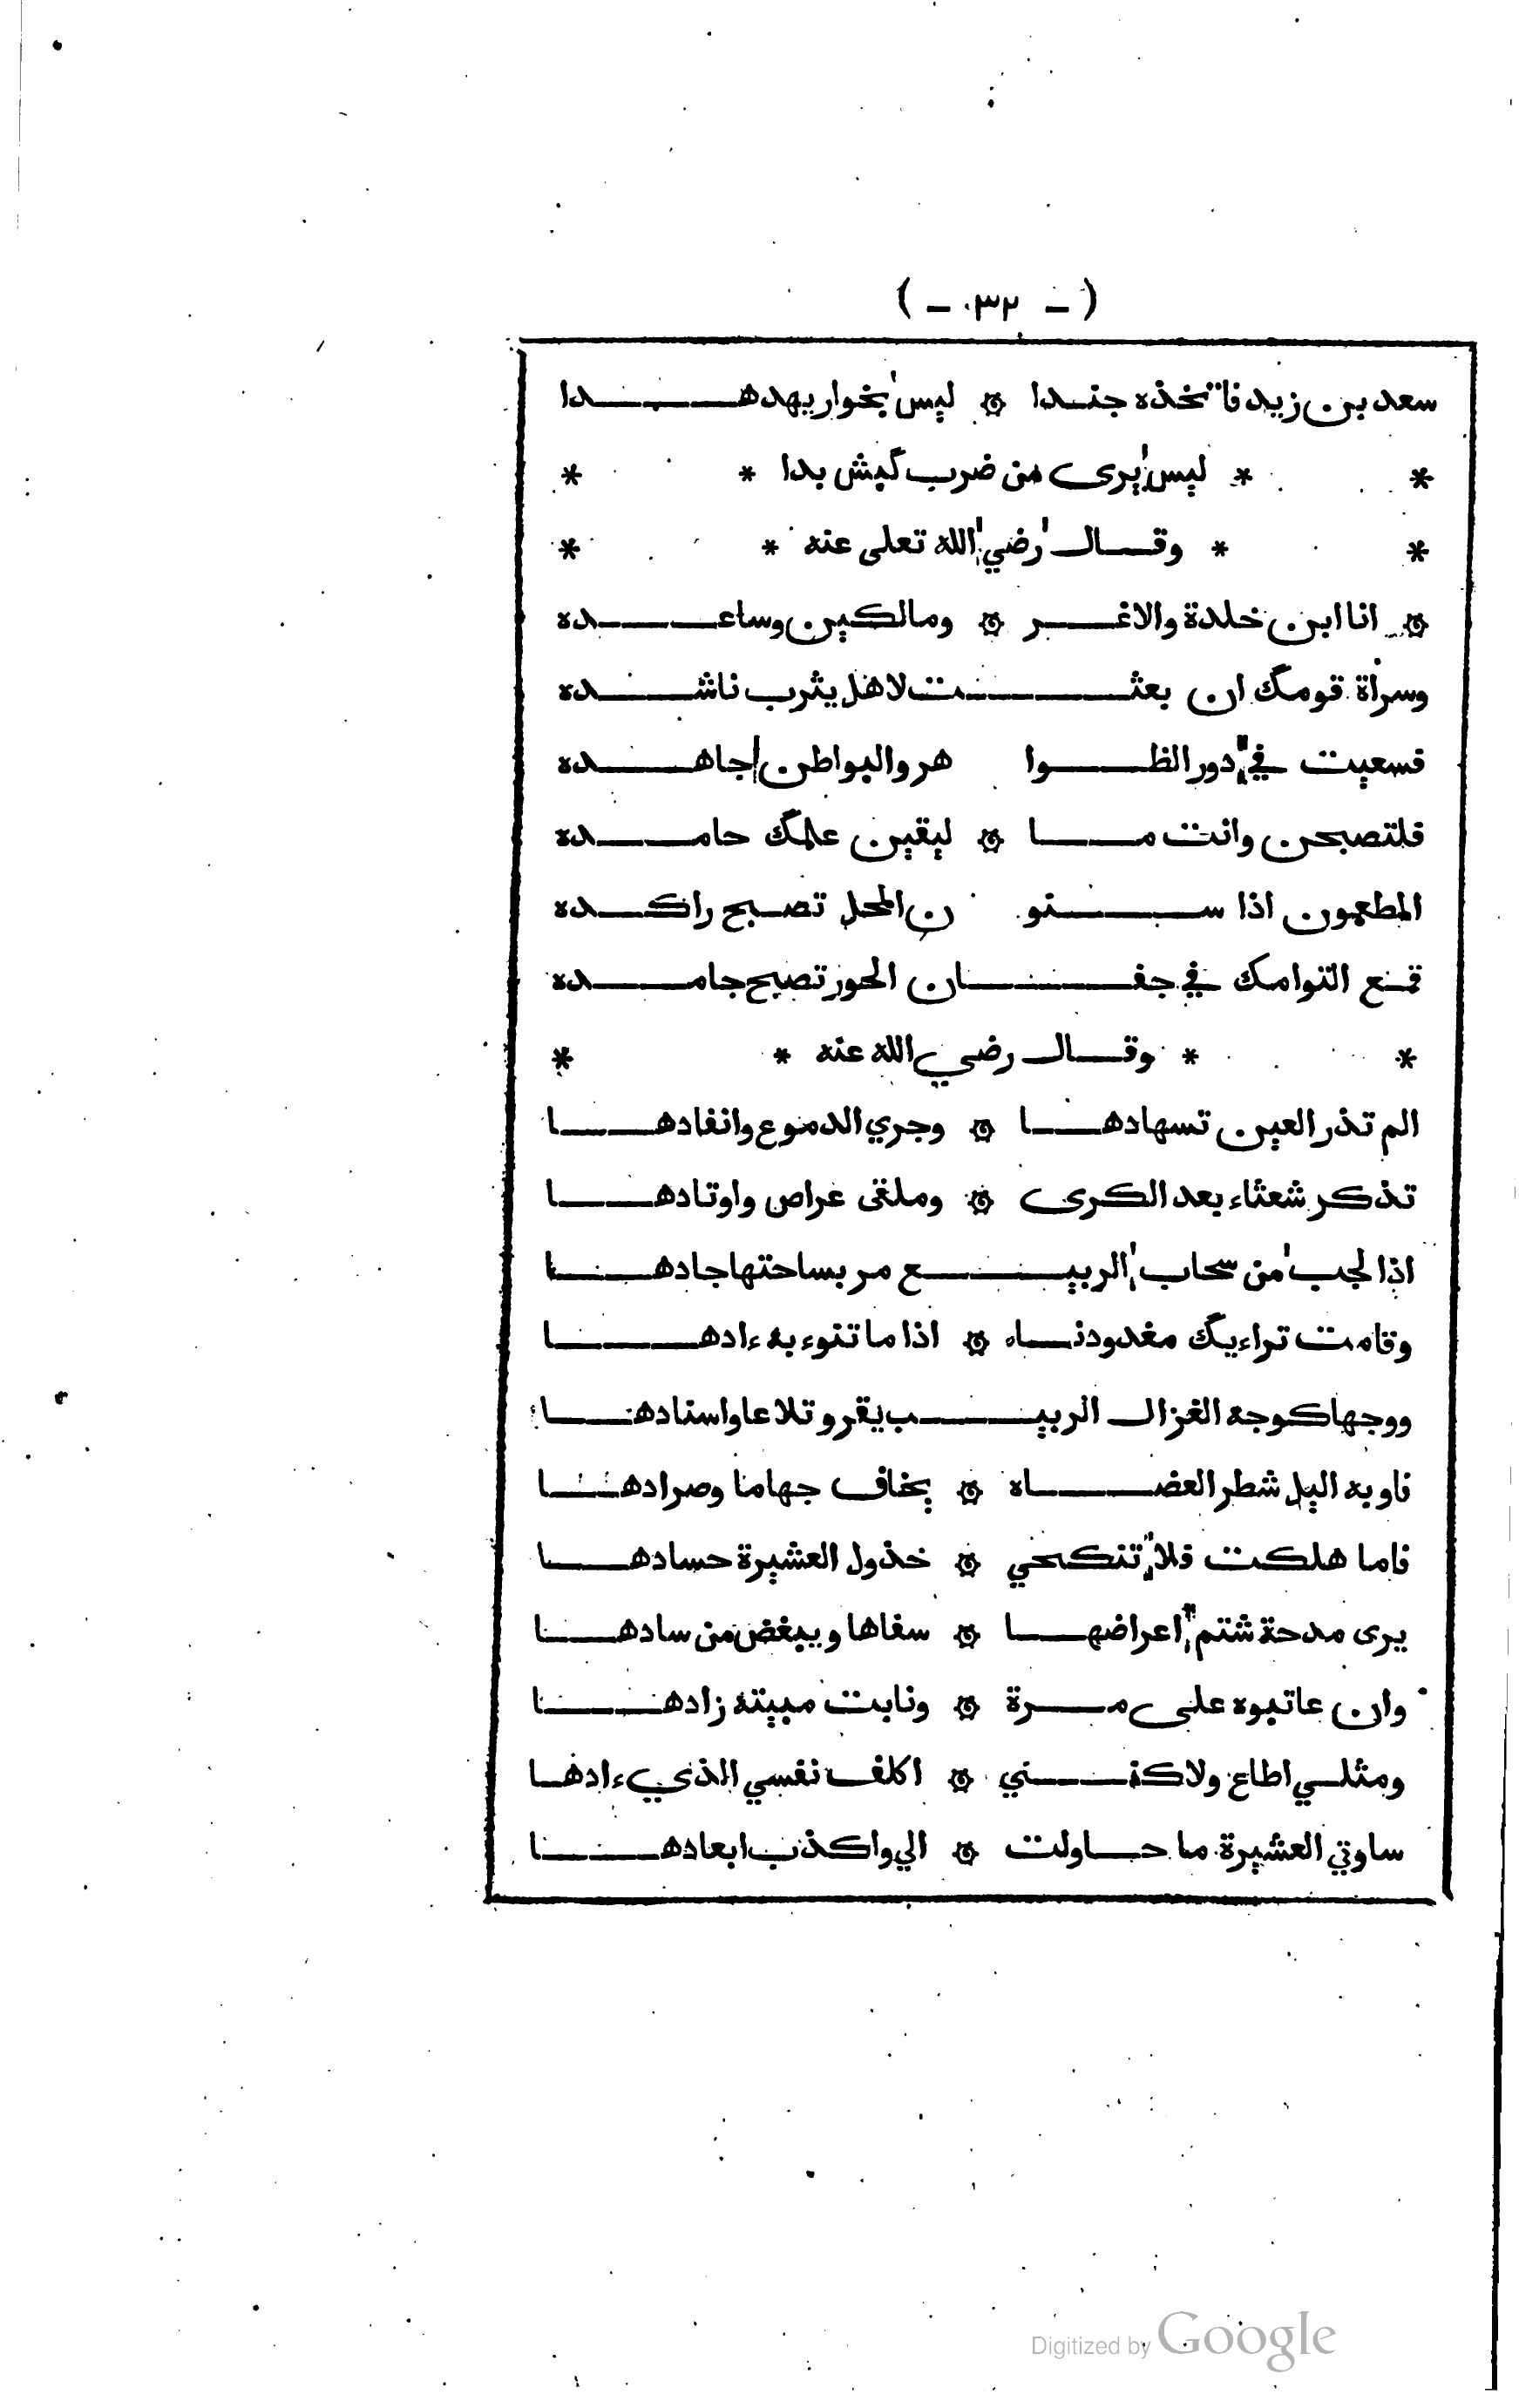 ( - ٣٢ - )
سعد بن زيد فاتخذه جندا ۞ ليس بخوار يهد هدا
* * ليس يرى من ضرب كبش بدا * *
* * وقال رضي الله تعلى عنه * *
۞ انا ابن خلدة والاغر ۞ ومالكين وساعده
وسراة قومك ان بعثت لاهل يثرب ناشده
فسعيت في دور الظوا هر والبواطن جاهده
فلتصبحن وانت ما ۞ ليقين علمك حامده
المطعمون اذا سنو ن المحل تصبح راكده
قمع التوامك في جفان الحور تصبح جامده
* * وقال رضي الله عنه * *
الم تذر العين تسهادها ۞ وجري الدموع وانفادها
تذكر شعثاء بعد الكرى ۞ وملقى عراص واوتادها
اذا لجب من سحاب الربيع مر بساحتها جادها
وقامت تراءيك مغدودناه ۞ اذا ما تنوء به ءادها
ووجها كوجه الغزال الربيب يقرو تلاعا واسنادها
فاوبه اليل شطر العضاه ۞ يخاف جهاما وصرادها
فاما هلكت فلا تنكحي ۞ خذول العشيرة حسادها
يرى مدحة شتم اعراضها ۞ سفاها ويبغض من سادها
وان عاتبوه على مرة ۞ ونابت مبيتة زادها
ومثلي اطاع ولاكنني ۞ اكلف نفسي الذي ءادها
ساوتي العشيرة ما حاولت ۞ الي واكذب ابعادها
Digitized by Google